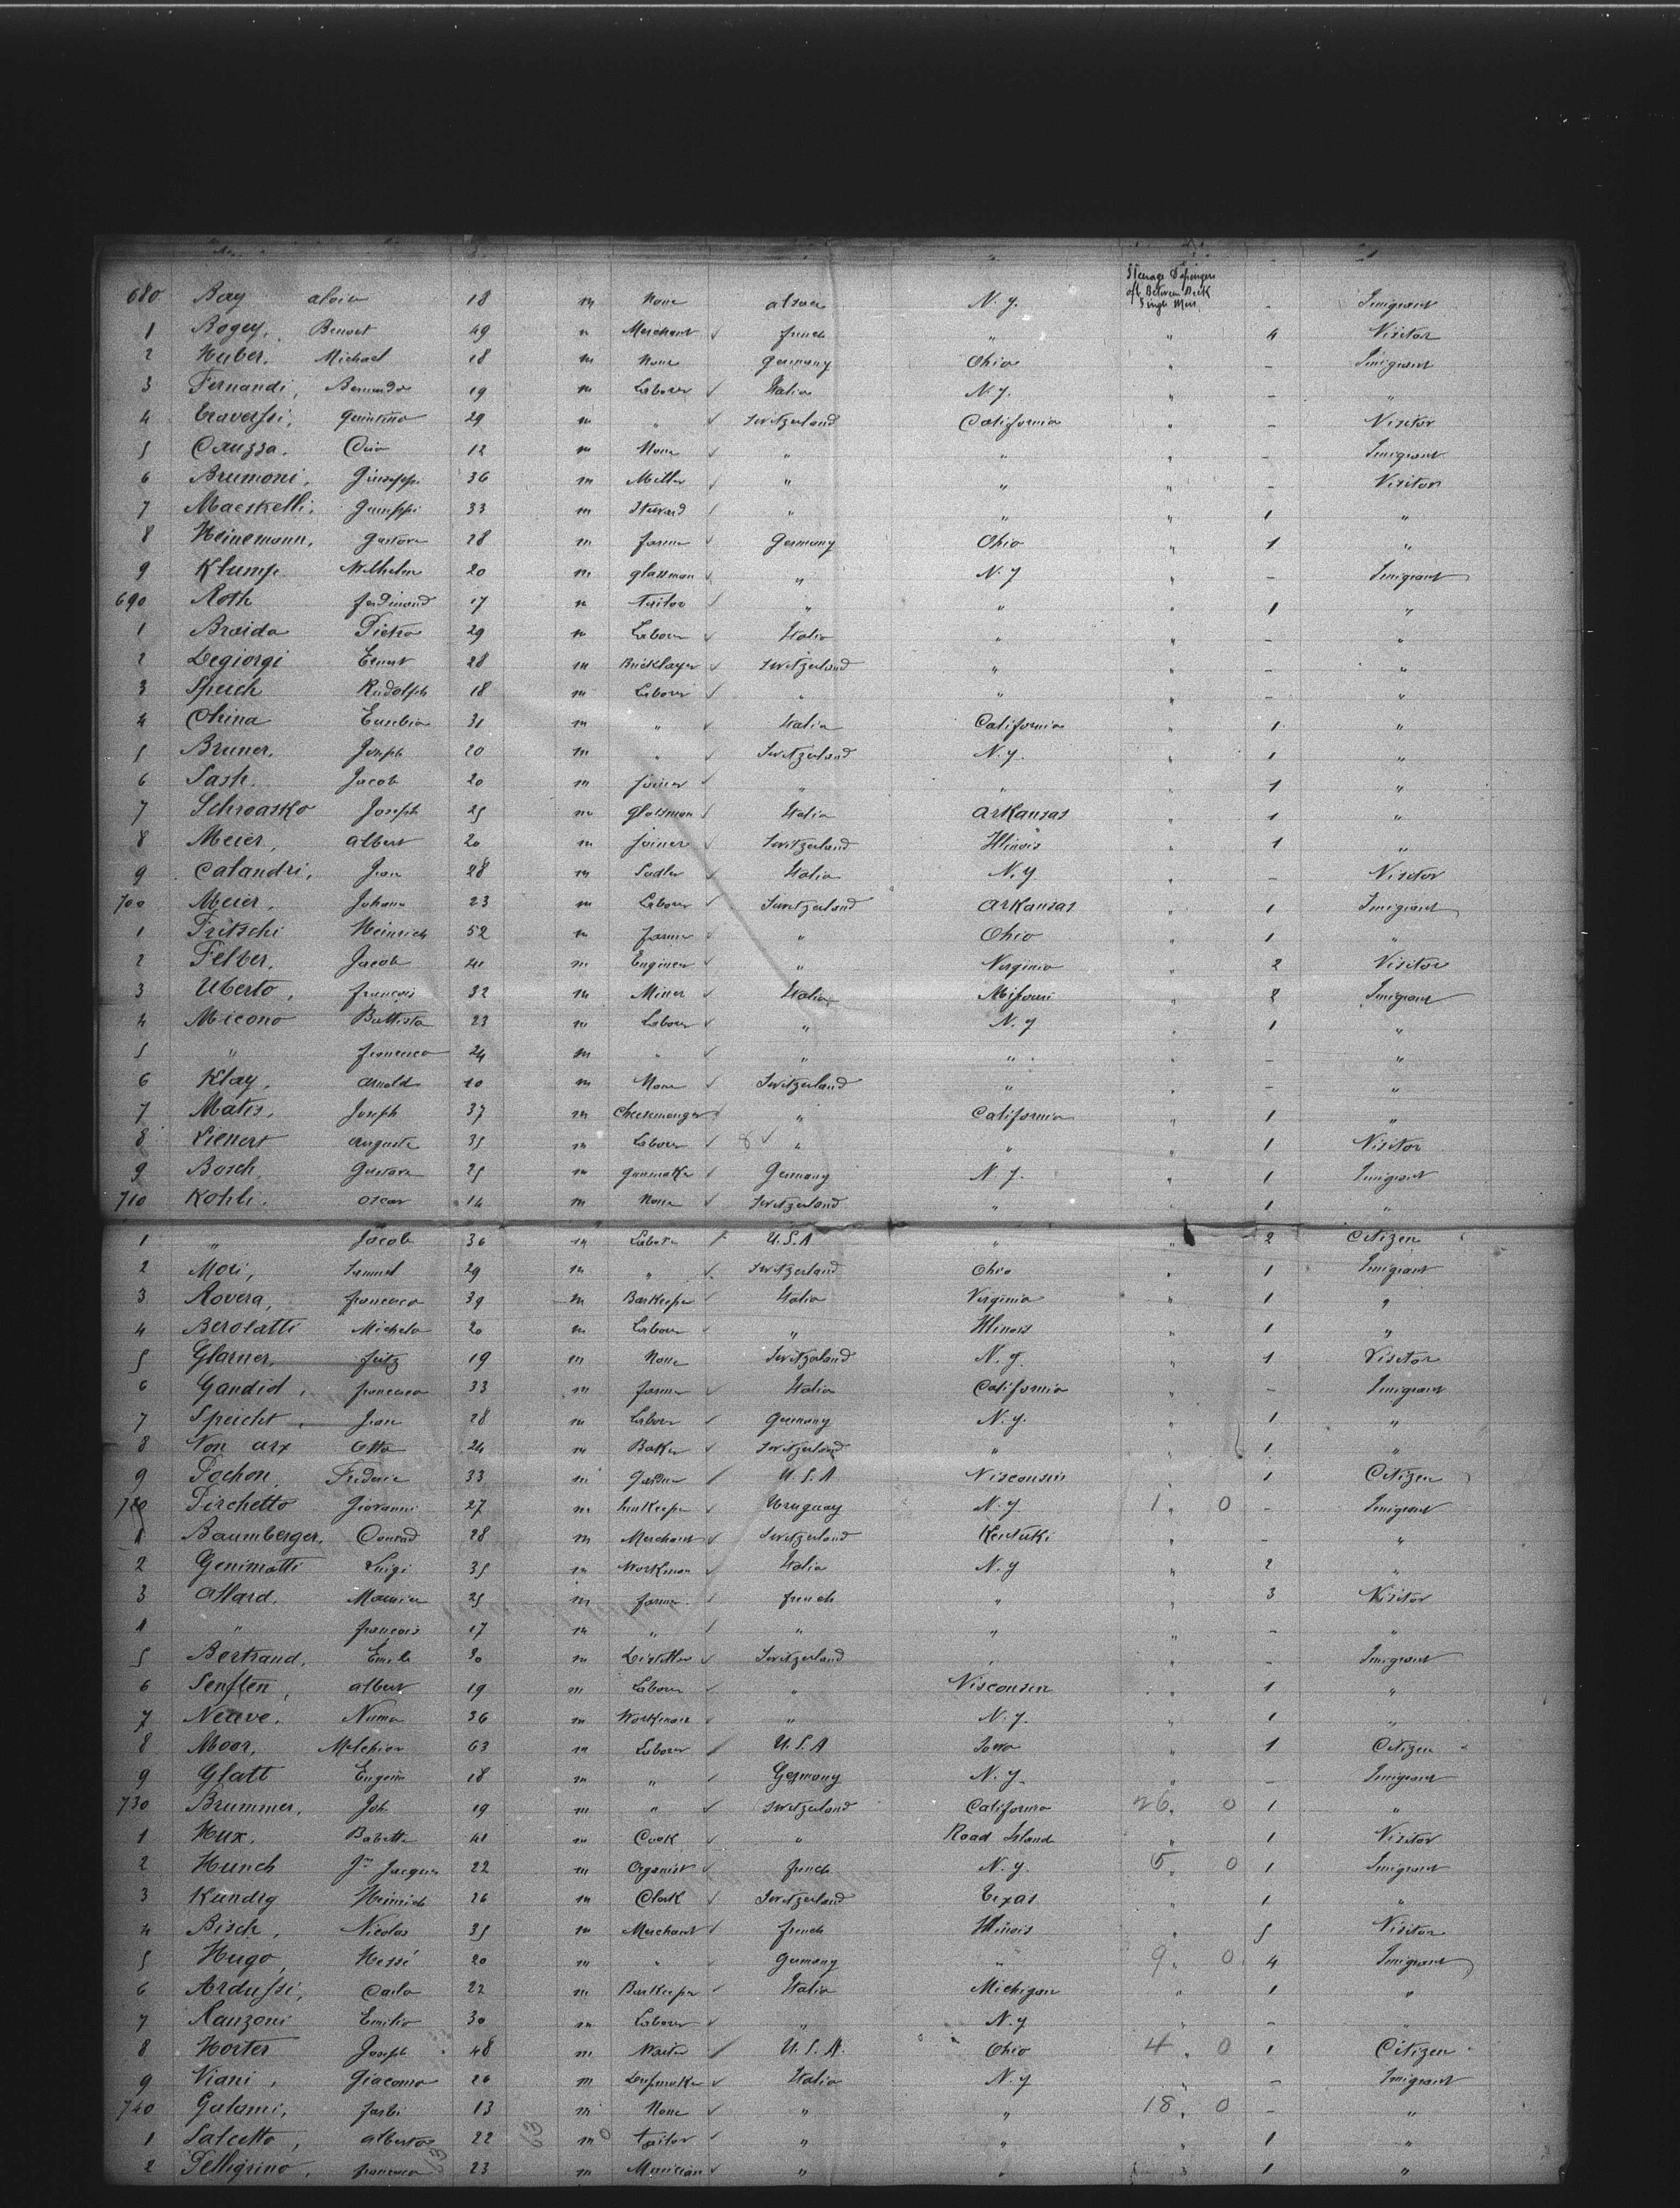 Steerage Passengers
aft Between Deck
Single Men
680 Bay aloïs 18 m None alsace N.y. - Imigrant
1 Bogey, Benoit 49 m Merchant french " " 4 Visitor
2 Huber, Michael 18 m None Germany Ohio " - Imigrant
3 Fernandi, Bernardo 19 m Laborer Italia N.y. " - "
4 Traverssi, Quintino 29 m " Switzerland California " - Visitor
5 Cauzza, 12 m None " " " - Imigrant
6 Brumoni, Giuseppi 36 m Miller " " " - Visitor
7 Maeskelli, Guiseppi 33 m Steward " " " 1 "
8 Heinemann, Gustave 28 m farmer Germany Ohio " 1 "
9 Klump Wilhelm 20 m glassman " N.y " - Imigrant
690 Roth ferdinand 17 m Tailor " " " 1 "
1 Braida Pietro 29 m Labour Italia " " - "
2 Degiorgi Ernest 28 m Bricklayer Switzerland " " - "
3 Speich Rudolph 18 m Laborer " " " - "
4 China Eusebio 31 m " Italia California " 1 "
5 Bruner, Joseph 20 m " Switzerland N.y. " 1 "
6 Sash, Jacob 20 m joiner " " " 1 "
7 Schroasko Joseph 25 m glassman Italia Arkansas " 1 "
8 Meier, albert 20 m joiner Switzerland Illinois " 1 "
9 Calandri, Jean 28 m Sadler Italia N.y " - Visitor
700 Meier, Johann 23 m Labour Switzerland Arkansas " 1 Imigrant
1 Fritschi Heinrich 52 m farmer " Ohio " 1 "
2 Felber, Jacob 41 m Engineer " Virginia " 2 Visitor
3 Uberto, françois 32 m Miner Italia Missouri " 2 Imigrant
4 Micono Battista 23 m Labour " N.y " 1 "
5 " francesco 24 m " " " " - "
6 Klay, arnold 10 m None Switzerland " " - "
7 Matis, Joseph 37 m Cheesemonger " California " 1 "
8 Lienert auguste 35 m Labour " " " 1 Visitor
9 Bosch, Gustave 25 m gunmaker Germany N.y. " 1 Imigrant
710 Kohli, oscar 14 m None Switzerland " " 1 "
1 " Jacob 36 m Laborer U.S.A " " 2 Citizen
2 Mori, Samuel 29 m " Switzerland Ohio " 1 Imigrant
3 Rovera, francesco 39 m Barkeeper Italia Virginia " 1 "
4 Berolatti Michele 20 m Labour " Illinois " 1 "
5 Glarner, fritz 19 m None Switzerland N.y. " 1 Visitor
6 Gandiol, francesco 33 m farmer Italia California " - Imigrant
7 Speicht, Jean 28 m Labour Germany N.y. " 1 "
8 Von arx Otto 24 m Baker Switzerland " " 1 "
9 Pochon, Frederic 33 m U.S.A Visconsin " 1 Citizen
720 Pirchetto Giovanni 27 m Innkeeper Uruguay N.y 1 " 0 - Imigrant
1 Baumberger, Conrad 28 m Merchant Switzerland Kentuki " - "
2 Genimatti Luigi 35 m Workman Italia N.y " 2 "
3 Allard, Maurice 25 m farmer french " " 3 Visitor
4 " francois 17 m " " " " - "
5 Bertrand, Emile 30 m Distiller Switzerland " " - Imigrant
6 Senften, albert 19 m Labour " Visconsin " 1 "
7 Neuve, Numa 36 m Workman " N.y. " 1 "
8 Moor, Melchior 63 m Laborer U.S.A Iowa " 1 Citizen
9 Glatt Eugene 18 m " Germany N.y. " - Imigrant
730 Brummer, Joh 19 m " Switzerland California 26 " 0 1 "
1 Hux, Babette 41 m Cook " Road Island " 1 Visitor
2 Hunch Jn Jacques 22 m Organist french N.y. 5 " 0 1 Imigrant
3 Kundig Heinrich 26 m Clerk Switzerland Texas " 1 "
4 Bisch, Nicolas 35 m Merchant french Illinois " 5 Visitor
5 Hugo, Hessé 20 m " Germany " 9 " 0 4 Imigrant
6 Ardussi, Carlo 22 m Barkeeper Italia Michigan " 1 "
7 Ranzoni Emilio 30 m Laborer " N.y " - "
8 Horter Joseph 48 m Waiter U.S.A. Ohio 4 " 0 1 Citizen
9 Viani, Giacomo 26 m Italia N.y " - Imigrant
740 Galami, 13 m None " " 18 " 0 - "
1 Salcetto, alberto 22 63 m 0 tailor " " " 1 "
2 Pelligrino, francesco 63 23 m Musician " " " 1 "